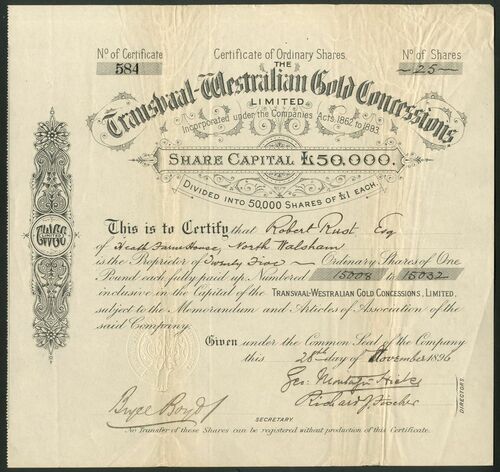 Nº of Certificate
584
Certificate of Ordinary Shares.
Nº of Shares
~25~
THE
Transvaal-Westralian Gold Concessions
LIMITED.
Incorporated under the Companies Acts, 1862 to 1883.
SHARE CAPITAL £50,000.
DIVIDED INTO 50,000 SHARES OF £1 EACH.
This is to Certify that Robert Rust Esq
of Heath Farm House, North Walsham
is the Proprietor of Twenty Five ~ Ordinary Shares of One
Pound each, fully paid up, Numbered 15008 to 15032
inclusive in the Capital of the TRANSVAAL-WESTRALIAN GOLD CONCESSIONS, LIMITED,
subject to the Memorandum and Articles of Association of the
said Company.
Given under the Common Seal of the Company
this 28th day of November 1896
Geo. Montagu Hicks
Richard J. Fischer
DIRECTORS
Bryce Boyd
SECRETARY
No Transfer of these Shares can be registered without production of this Certificate.
LIMITED